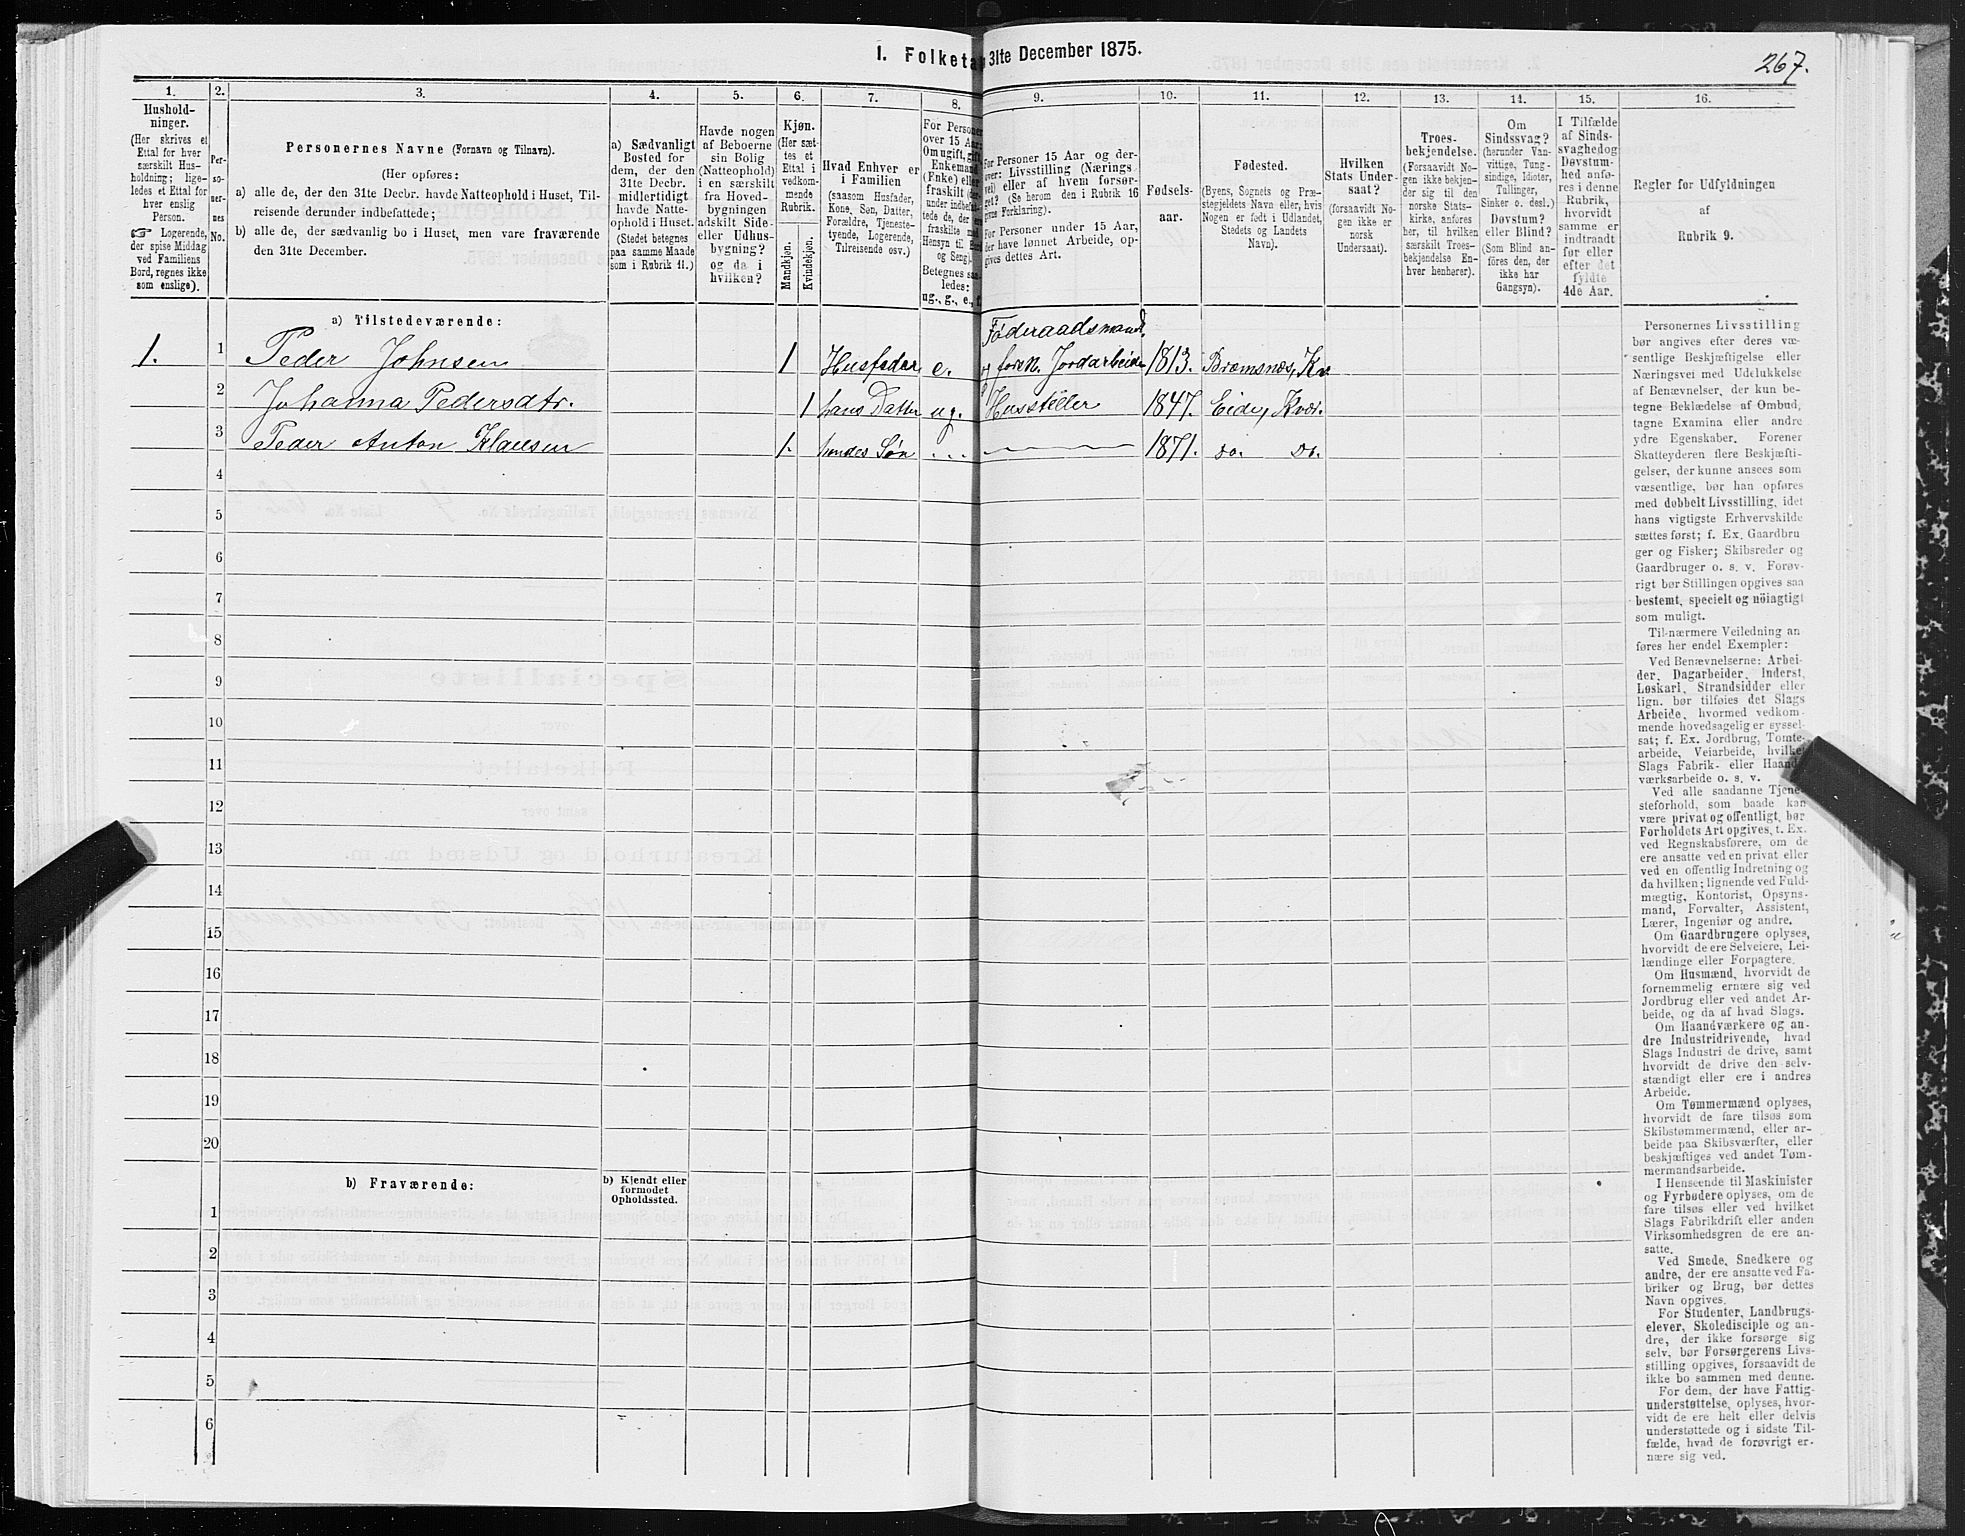 I. Folketal 31te December 1875.
267.
1.
2.
3.
4.
5.
6.
7.
8.
9.
10.
11.
12.
13.
14.
15.
16.
Hushold-
ninger.
(Her skrives et
Ettal for hver
særskilt Hus-
holdning; lige-
ledes et Ettal for
hver enslig
Person.
☞ Logerende,
der spise Middag
ved Familiens
Bord, regnes ikke
som enslige).
Per-
so-
ner-
nes
No.
Personernes Navne (Fornavn og Tilnavn).
(Her opføres:
a) alle de, der den 31te Decbr. havde Natteophold i Huset, Til-
reisende derunder indbefattede;
b) alle de, der sædvanlig bo i Huset, men vare fraværende
den 31te December.
a) Sædvanligt
Bosted for
dem, der den
31te Decbr.
midlertidigt
havde Natte-
ophold i Huset.
(Stedet betegnes
paa samme Maade
som i Rubrik 11.)
Havde nogen
af Beboerne
sin Bolig
(Natteophold)
i en særskilt
fra Hoved-
bygningen
adskilt Side-
eller Udhus-
bygning?
og da i
hvilken?
Kjøn.
(Her sæt-
tes et
Ettal i
vedkom-
mende
Rubrik.
Mandkjøn.
Kvindekjøn.
Hvad Enhver er
i Familien
(saasom Husfader,
Kone, Søn, Datter,
Forældre, Tjeneste-
tyende, Logerende,
Tilreisende osv.)
For Personer
over 15 Aar:
Om ugift, gift,
Enkemand
(Enke) eller
fraskilt
Betegnes saa-
ledes:
ug., g., e., f.
For Personer 15 Aar og der-
over: Livsstilling (Nærings
vei) eller af hvem forsør-
get? (Se herom den i Rubrik 16
givne Forklaring).
For Personer under 15 Aar,
der have lønnet Arbeide, op-
gives dettes Art.
Fødsels-
aar.
Fødested.
(Byens, Sognets og Præ-
stegjeldets Navn eller, hvis
Nogen er født i Udlandet,
Stedets og Landets
Navn).
Hvilken
Stats Under-
saat?
(forsaavidt No-
gen ikke er
norsk
Undersaat).
Troes-
bekjendelse.
(Forsaavidt No-
gen ikke bekjen-
der sig til den
norske Stats-
kirke, anføres
her, til hvilken
særskilt Troes-
bekjendelse En-
hver henhører).
Om
Sindssvag?
(herunder Van-
vittige, Tung-
sindige, Idioter,
Tullinger,
Sinker o. desl.)
Døvstum?
eller Blind?
(Som Blind an-
føres den, der
ikke har
Gangsyn).
I Tilfælde
af Sinds-
svaghed og
Døvstum-
hed anfø-
res i denne
Rubrik,
hvorvidt
samme er
indtraadt
før eller
efter det
fyldte
4de Aar.
Regler for Udfyldningen
af
Rubrik 9.
a) Tilstedeværende:
Føderaadsmand,
1. 1 Peder Johnsen 1 Husfader e. forh. Jordarbeider 1813. Bræmsnæs, Kv.
2 Johanna Pedersdtr. 1 hans Datter ug. Hussteller 1847. Eide, Kvær.
3 Peder Anton Klausen 1. hendes Søn 1871. do. Do.
4
5
6
7
8
9
10
11
12
13
14
15
16
17
18
19
20
b) Fraværende:
b) Kjendt eller
formodet
Opholdssted.
1
2
3
4
5
6
Personernes Livsstilling
bør angives efter deres væ-
sentlige Beskjæftigelse eller
Næringsvei med Udelukkelse
af Benævnelser, der kun be-
tegne Beklædelse af Ombud,
tagne Examina eller andre
ydre Egenskaber. Forener
Skatteyderen flere Beskjæfti-
gelser, der kunne ansees som
væsentlige, bør han opføres
med dobbelt Livsstilling, idet
hans vigtigste Erhvervskilde
sættes først; f. Ex. Gaardbru
ger og Fisker; Skibsreder og
Gaardbruger o. s. v. Forøv-
rigt bør Stillingen opgives saa
bestemt, specielt og nöiagtigt
som muligt.
Til nærmere Veiledning an
føres her endel Exempler:
Ved Benævnelserne: Arbei-
der, Dagarbeider, Inderst,
Løskarl, Strandsidder eller
lign. bør tilføies det Slags
Arbeide, hvormed vedkom-
mende hovedsagelig er syssel-
sat; f. Ex. Jordbrug, Tomte-
arbeide, Veiarbeide, hvilket
Slags Fabrik- eller Haand-
værksarbeide o. s. v.
Ved alle saadanne Tjene-
steforhold, som baade kan
være privat og offentligt, bør
Forholdets Art opgives, t. Ex.
ved Regnskabsførere, om de
ere ansatte ved en privat eller
ved en offentlig Indretning og
da hvilken; lignende ved Fuld-
mægtig, Kontorist, Opsyns-
mand, Forvalter, Assistent,
Lærer, Ingeniør og andre.
Om Gaardbrugere oplyses,
hvorvidt de ere Selveiere, Lei-
lændinge eller Forpagtere.
Om Husmænd, hvorvidt de
fornemmelig ernære sig ved
Jordbrug eller ved andet Ar-
beide, og da af hvad Slags.
Om Haandværkere og an-
dre Industridrivende, hvad
Slags Industri de drive, samt
hvorvidt de drive den selv-
stændigt eller ere i andres
Arbeide.
Om Tømmermænd oplyses,
hvorvidt de fare tilsøs som
Skibstømmermænd, eller ar-
beide paa Skibsværfter, eller
beskjæftiges ved andet Tøm-
mermandsarbeide.
I Henseende til Maskinister
og Fyrbødere oplyses, om de
fare tilsøs eller ved hvilket
Slags Fabrikdrift eller anden
Virksomhedsgren de ere an-
satte.
Ved Smede, Snedkere og
andre, der ere ansatte ved Fa-
briker og Brug, bør dettes
Navn opgives.
For Studenter, Landbrugs-
elever, Skoledisciple og an-
dre, der ikke forsørge sig
selv, bør Forsørgerens Livs-
stilling opgives, forsaavidt de
ikke bo sammen med denne.
For dem, der have Fattig-
understøttelse, oplyses, hvor-
vidt de ere helt eller delvis
understøttede og i sidste Til-
fælde, hvad de forøvrigt er-
nære sig ved.